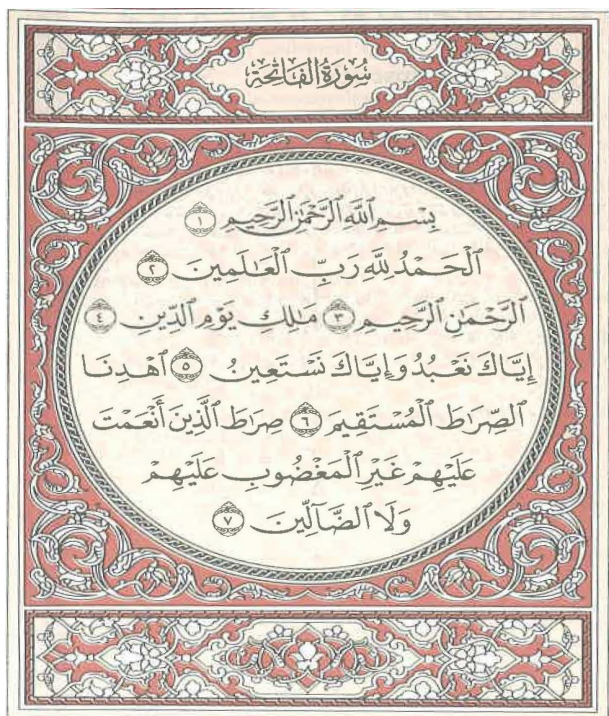 سُورَةُ الفَاتِحَة
بِسْمِ ٱللَّهِ ٱلرَّحْمَٰنِ ٱلرَّحِيمِ ١
ٱلْحَمْدُ لِلَّهِ رَبِّ ٱلْعَالَمِينَ ٢
ٱلرَّحْمَٰنِ ٱلرَّحِيمِ ٣ مَٰلِكِ يَوْمِ ٱلدِّينِ ٤
إِيَّاكَ نَعْبُدُ وَإِيَّاكَ نَسْتَعِينُ ٥ ٱهْدِنَا
ٱلصِّرَٰطَ ٱلْمُسْتَقِيمَ ٦ صِرَٰطَ ٱلَّذِينَ أَنْعَمْتَ
عَلَيْهِمْ غَيْرِ ٱلْمَغْضُوبِ عَلَيْهِمْ
وَلَا ٱلضَّآلِّينَ ٧